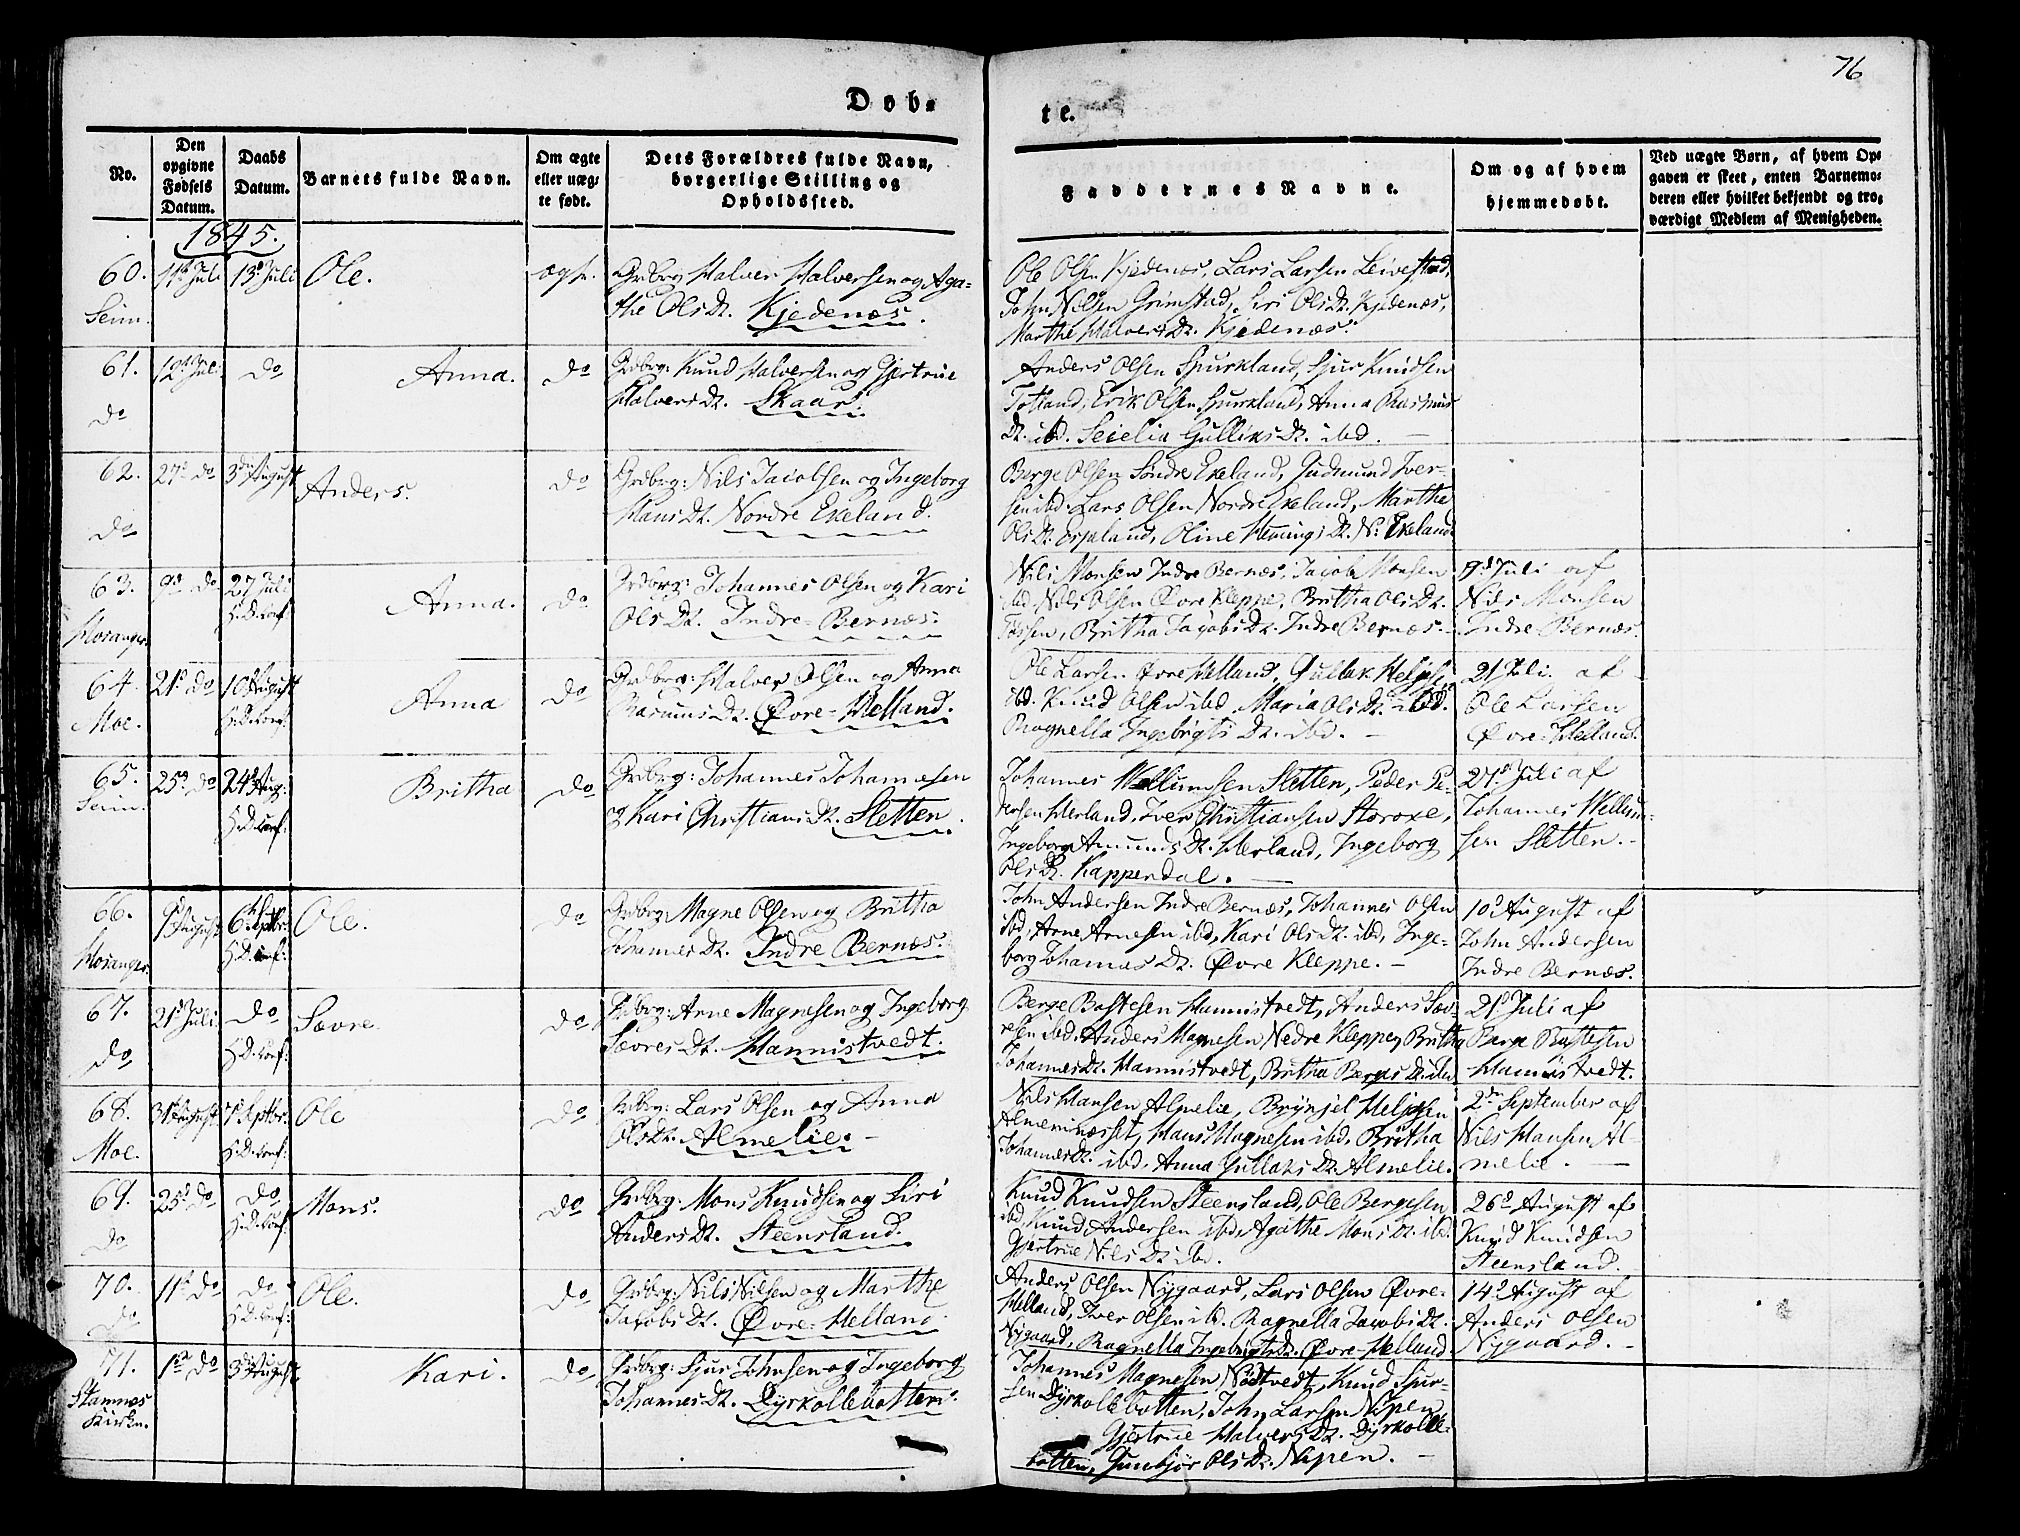 76
Døb-
te.
No.
Den opgivne Fødsels Datum.
Daabs Datum.
Barnets fulde Navn.
Om ægte eller uæg-
te født.
Dets Forældres fulde Navn,
borgerlige Stilling og
Opholdssted.
Faddernes Navne.
Om og af hvem
hjemmedøbt.
Ved uægte Børn, af hvem Op-
gaven er skeet, enten Barnemo-
deren eller hvilket bekjendt og tro-
værdigt Medlem af Menigheden.
1845.
60. 11te Juli 13de Juli Ole. ægte.
Seim.
Grdbrg Halver Halversen og Aga-
the Olsdt. Kjedenæs.
Ole Olsen Kjedenæs, Lars Larsen Leivestad,
John Nilsen Grimstad, Siri Olsdt. Kjedenæs,
Marthe Halversdt. Kjedenæs.
61. 12te Juli do Anna. do
do
Grdbrg: Knud Halversen og Gjertrue
Halversdt. Skaar.
Anders Olsen Spurkland, Sjur Knudsen
Totland, Erik Olsen Spurkland, Anna Rasmus
Dt. ibd. Seielia Gulliksdt. ibd.
62. 27de do 3die August Anders. do
do
Grdbrg: Nils Jacobsen og Ingeborg
Hansdt. Nordre Ekeland.
Berge Olsen Søndre Ekeland, Gudmund Iver-
sen ibd. Lars Olsen Nordre Ekeland, Marthe
Olsdt. Espeland, Oline Hemingsdt. N: Ekeland
63. 9de do 27 Juli Anna. do
H.D. Conf:
Mosanger
Grdbrg: Johannes Olsen og Kari
Olsdt. Indre Bernæs.
Nils Monsen Indre Bernæs, Jacob Monsen
ibd, Nils Olsen Øvre Kleppe, Britha Olsdt.
Tøssen, Britha Jacobsdt. Indre Bernæs.
9de Juli af
Nils Monsen
Indre Bernæs.
64. 21de do 10de August Anna do
H.D. Conf:
Moe.
Grdbrg: Halver Olsen og Anna
Rasmusdt. Øvre Helland.
Ole Larsen Øvre Helland, Gullak Helgesen
ibd. Knud Olsen ibd, Maria Olsdt. ibd.
Ragnella Ingebrigtsdt. ibd.
21 Juli af
Ole Larsen
Øvre Helland.
65. 25de do 24de Aug: Britha do
H.D. Conf:
Seim.
Grdbrg: Johannes Johannesen
og Kari Christiansdt. Sletten.
Johannes Wellumsen Sletten, Peder Pe-
dersen Herland, Iver Christiansen Storoxe,
Ingeborg Amundsdt. Herland, Ingeborg
Olsdt. Kappendal.
27de Juli af
Johannes Wellum-
sen Sletten.
66. 9de August 6te Septbr: Ole. do
H.D. Conf:
Mosanger.
Grdbrg: Magne Olsen og Britha
Johannesdt. Indre Bernæs.
John Andersen Indre Bernæs, Johannes Olsen
ibd, Arne Arnesen ibd, Kari Olsdt. ibd, Inge-
borg Johannesdt. Øvre Kleppe.
10de August af
John Andersen
Indre Bernæs.
67. 21de Juli do Sævre. do
H.D. Conf:
do
Grdbrg: Arne Magnesen og Ingeborg
Sævresdt. Mannistvedt.
Berge Bostesen Mannistvedt, Anders Sæv-
resen ibd. Anders Magnesen Nedre Kleppe, Britha
Johannesdt. Mannistvedt, Britha Bergesdt. ibd.
21de Juli af
Berge Bostesen
Mannistvedt.
68. 31te August 7de Septbr: Ole do
H.D. Conf:
Moe.
Grdbrg: Lars Olsen og Anna
Olsdt. Almelie.
Nils Hansen Almelie, Brynjel Helgesen
Almennæsset, Hans Magnesen ibd. Britha
Johannesdt. ibd, Anna Gullaksdt. Almelie.
2den September af
Nils Hansen Al-
melie.
69. 25de do do Mons. do
H.D. Conf:
do
Grdbrg: Mons Knudsen og Siri
Andersdt. Steensland.
Knud Knudsen Steensland, Ole Bergesen
ibd, Knud Andersen ibd, Agathe Monsdt. ibd.
Gjertrue Nilsdt. ibd.
26de August af
Knud Knudsen
Steensland.
70. 11te do do Ole. do
H.D. Conf:
do
Grdbrg: Nils Nilsen og Marthe
Jacobsdt. Øvre Helland.
Anders Olsen Nygaard, Lars Olsen Øvre
Helland, Iver Olsen ibd. Ragnella Jacobsdt.
Nygaard, Ragnella Ingebrigtsdt. Øvre Helland
14de August af
Anders Olsen
Nygaard.
71. 1ste do 3die August Kari. do
Stamnes
Kirke.
Grdbrg: Sjur Johnsen og Ingeborg
Johannesdt. Dyrkollebotten.
Johannes Magnesen Nødtvedt, Knud Sjur-
sen Dyrkollebotten, John Larsen Nipen
Gjertrue Halversdt. Dyrkolle-
botten, Gunbjør Olsdt. Nipen.